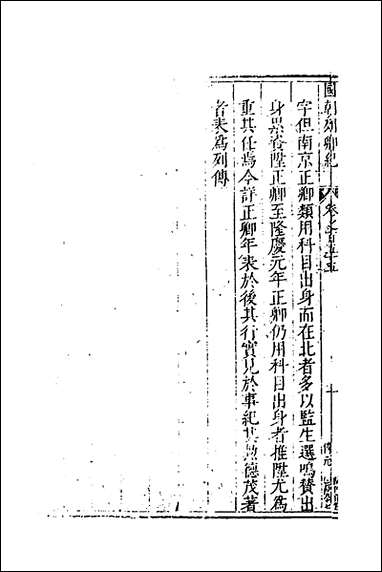 國朝列卿紀 卷之一百五十五
字但南京正卿類用科目出身而在北者多以監生選鳴贊出
身累薦陞正卿至隆慶元年正卿仍用科目出身者推陞尤為
重其任焉今詳正卿年表於後其行實見於事紀其勲德茂著
者表為列傳